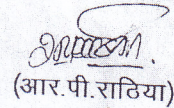 (आर.पी.राठिया)